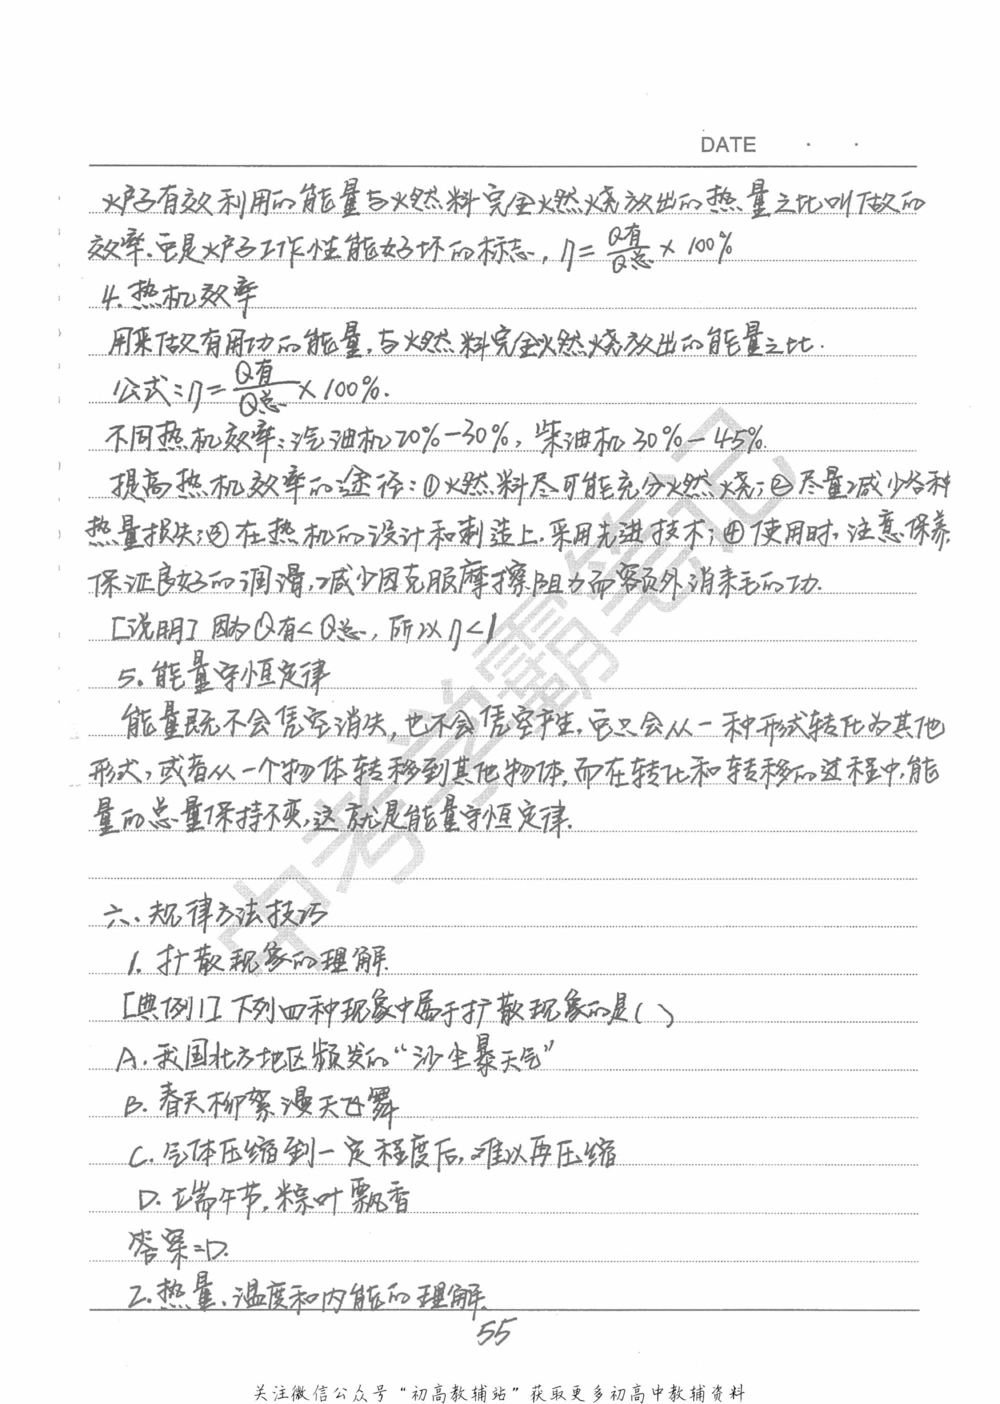 DATE · ·
炉子有效利用的能量与燃料完全燃烧放出的热量之比叫做的
效率.它是炉子工作性能好坏的标志, η=Q有/Q总×100%
4.热机效率
用来做有用功的能量,与燃料完全燃烧放出的能量之比.
公式:η=Q有/Q总×100%.
不同热机效率:汽油机20%-30%, 柴油机30%-45%.
提高热机效率的途径:①燃料尽可能充分燃烧;②尽量减少各种
热量损失;③在热机的设计和制造上,采用先进技术;④使用时,注意保养,
保证良好的润滑,减少因克服摩擦阻力而额外消耗的功.
[说明] 因为Q有<Q总, 所以η<1
5.能量守恒定律
能量既不会凭空消失,也不会凭空产生,它只会从一种形式转化为其他
形式,或者从一个物体转移到其他物体,而在转化和转移的过程中,能
量的总量保持不变,这就是能量守恒定律.
六.规律方法技巧
1.扩散现象的理解
[典例1]下列四种现象中属于扩散现象的是( )
A.我国北方地区频发的“沙尘暴天气”
B.春天柳絮漫天飞舞
C.气体压缩到一定程度后,难以再压缩
D.端午节,粽叶飘香
答案:D.
2.热量、温度和内能的理解
55
中考学霸笔记
关注微信公众号“初高教辅站”获取更多初高中教辅资料